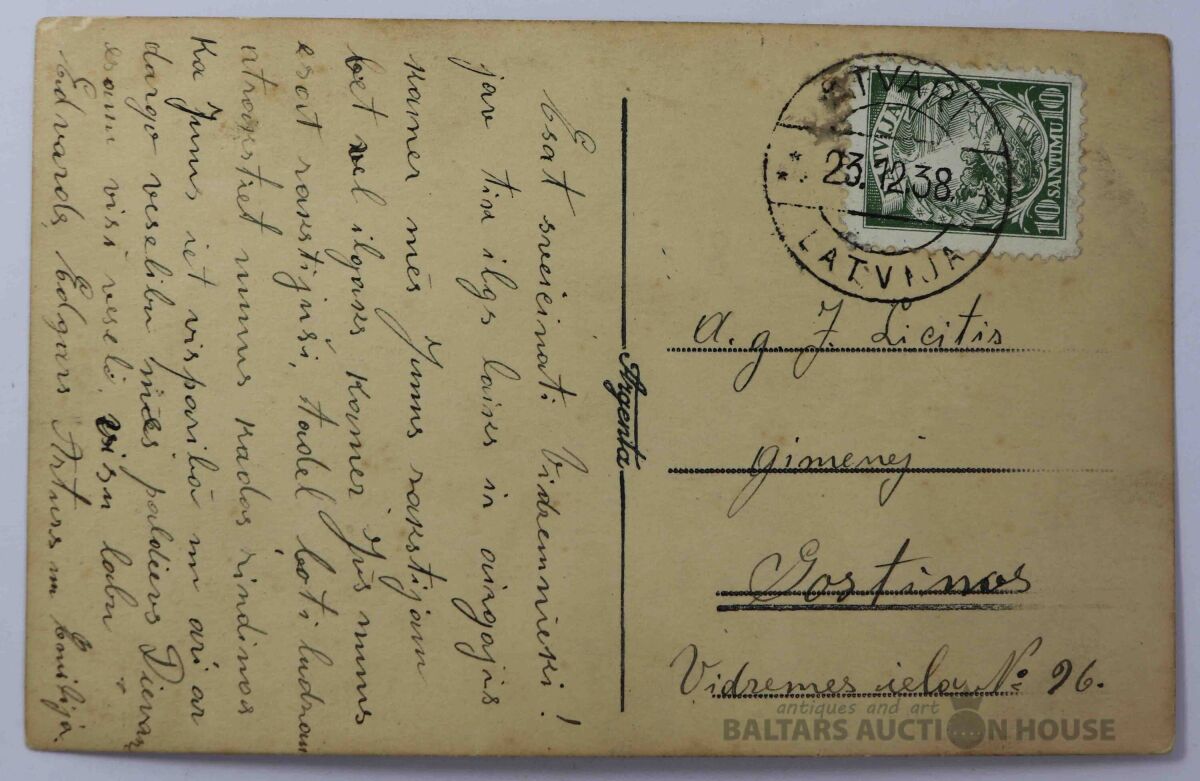 Esat sveicinati vidzemnieki!
jav tik ilgs laiks ir aizgajis
kamer mēs Jums rakstijam
bet vel ilgaks kamer Jūs mums
esat rakstijuši, tadel ļoti ludzam
atrakstiet mums kadas rindinas
Ka Jums iet vispariba un ari ar
dargo veselibu mēs paldievs Dievam
esam visi veseli visu labu
Edvards, Edgars Arturs un Emilija.
Argenta
STVAR
23.12.38
LATVIJA
LATVIJA
10 SANTIMU 10
A. g. J. Licitis
gimenej
Gostinos
Vidzemes iela № 96.
antiques and art
BALTARS AUCTION HOUSE